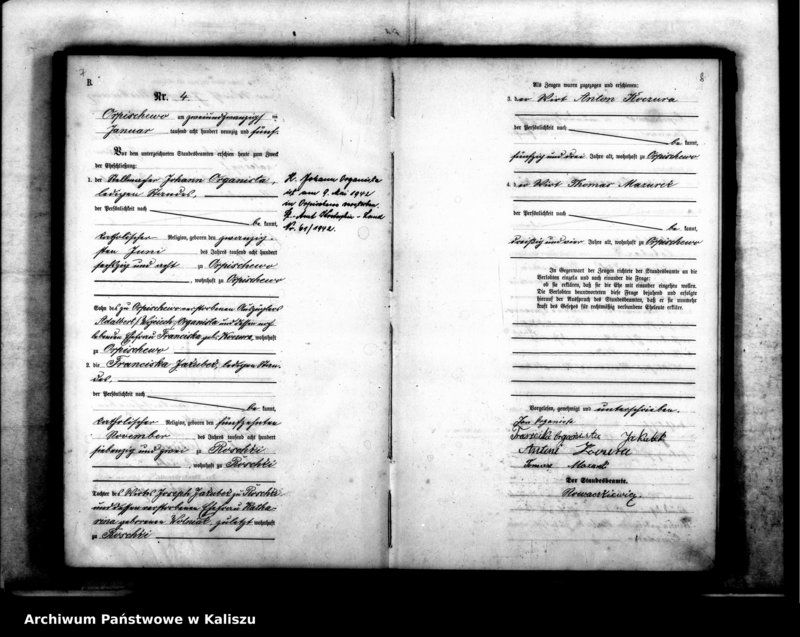 B.
Nr. 4.
Orpischewo am zweiundzwanzigsten
Januar tausend acht hundert neunzig und fünf.
Vor dem unterzeichneten Standesbeamten erschien heute zum Zweck
der Eheschließung:
1. der Stellmacher Johann Organista,
ledigen Standes,
der Persönlichkeit nach
be kannt,
katholischer Religion, geboren den zwanzig-
sten Juni des Jahres tausend acht hundert
sechzig und acht zu Orpischewo
, wohnhaft zu Orpischewo
Sohn des zu Orpischewo verstorbenen Auszüglers
Adalbert (Wojciech) Organista und dessen noch
lebenden Ehefrau Franciska geb. wohnhaft
zu Orpischewo
2. die Franciska Jakubek, ledigen Stan-
des,
der Persönlichkeit nach
be kannt,
katholischer Religion, geboren den fünfzehnten
November des Jahres tausend acht hundert
siebenzig und zwei zu Roschki
, wohnhaft zu Roschki
Tochter des Wirts Joseph Jakubek zu Roschki
und dessen verstorbenen Ehefrau Katha-
rina geborenen Wolniak, zuletzt wohnhaft
zu Roschki
H. Johann Organista
ist am 9. Mai 1942
in Orpischewo verstorben
St.-Amt Krotoschin - Land
Nr. 61/1942.
8
Als Zeugen waren zugezogen und erschienen:
3. der Wirt Anton
der Persönlichkeit nach
be kannt,
fünfzig und drei Jahre alt, wohnhaft zu Orpischewo
4. der Wirt Thomas Mazurek
der Persönlichkeit nach
be kannt,
dreißig und vier Jahre alt, wohnhaft zu Orpischewo
In Gegenwart der Zeugen richtete der Standesbeamte an die
Verlobten einzeln und nach einander die Frage:
ob sie erklären, daß sie die Ehe mit einander eingehen wollen.
Die Verlobten beantworteten diese Frage bejahend und erfolgte
hierauf der Ausspruch des Standesbeamten, daß er sie nunmehr
kraft des Gesetzes für rechtmäßig verbundene Eheleute erkläre.
Vorgelesen, genehmigt und unterschrieben.
Jan Organista
Organista Jakubek
Antoni
Tomasz
Der Standesbeamte.
Nowaczkiewicz
Archiwum Państwowe w Kaliszu